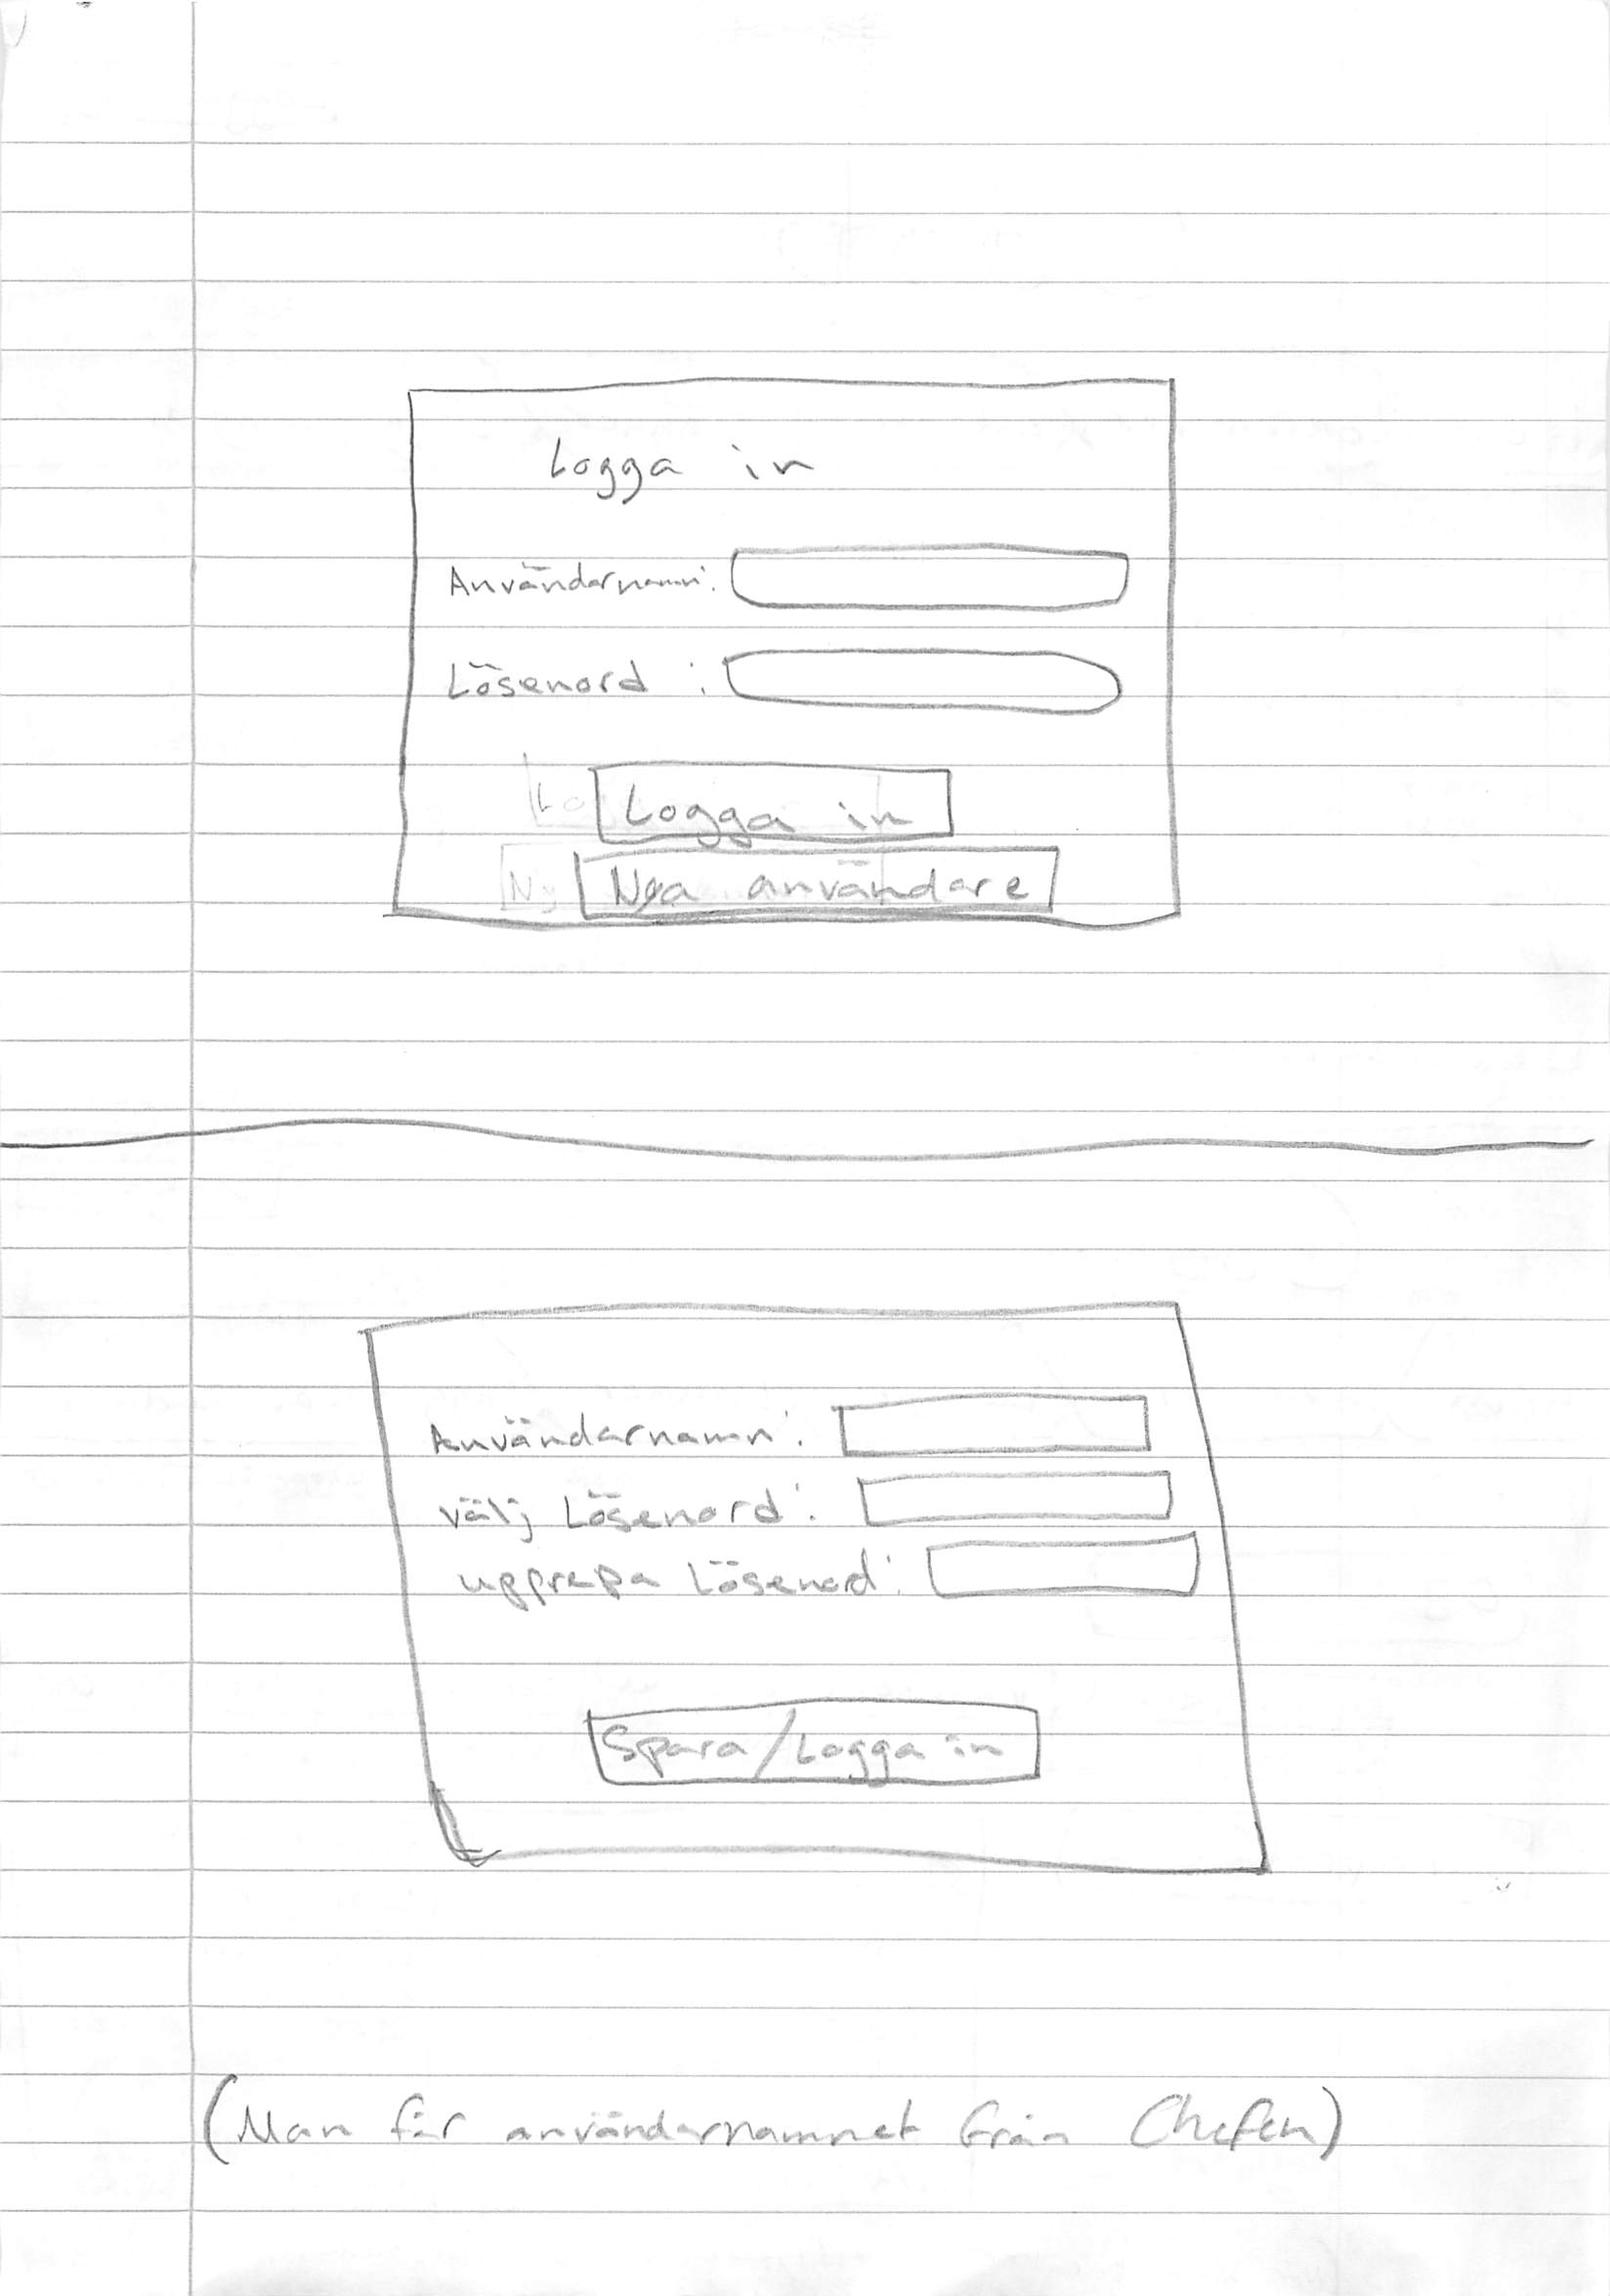 Logga in
Användarnamn:
Lösenord :
Logga in
Nya användare
Användarnamn:
välj Lösenord:
upprepa Lösenord:
Spara/Logga in
(Man får användarnamnet från Chefen)